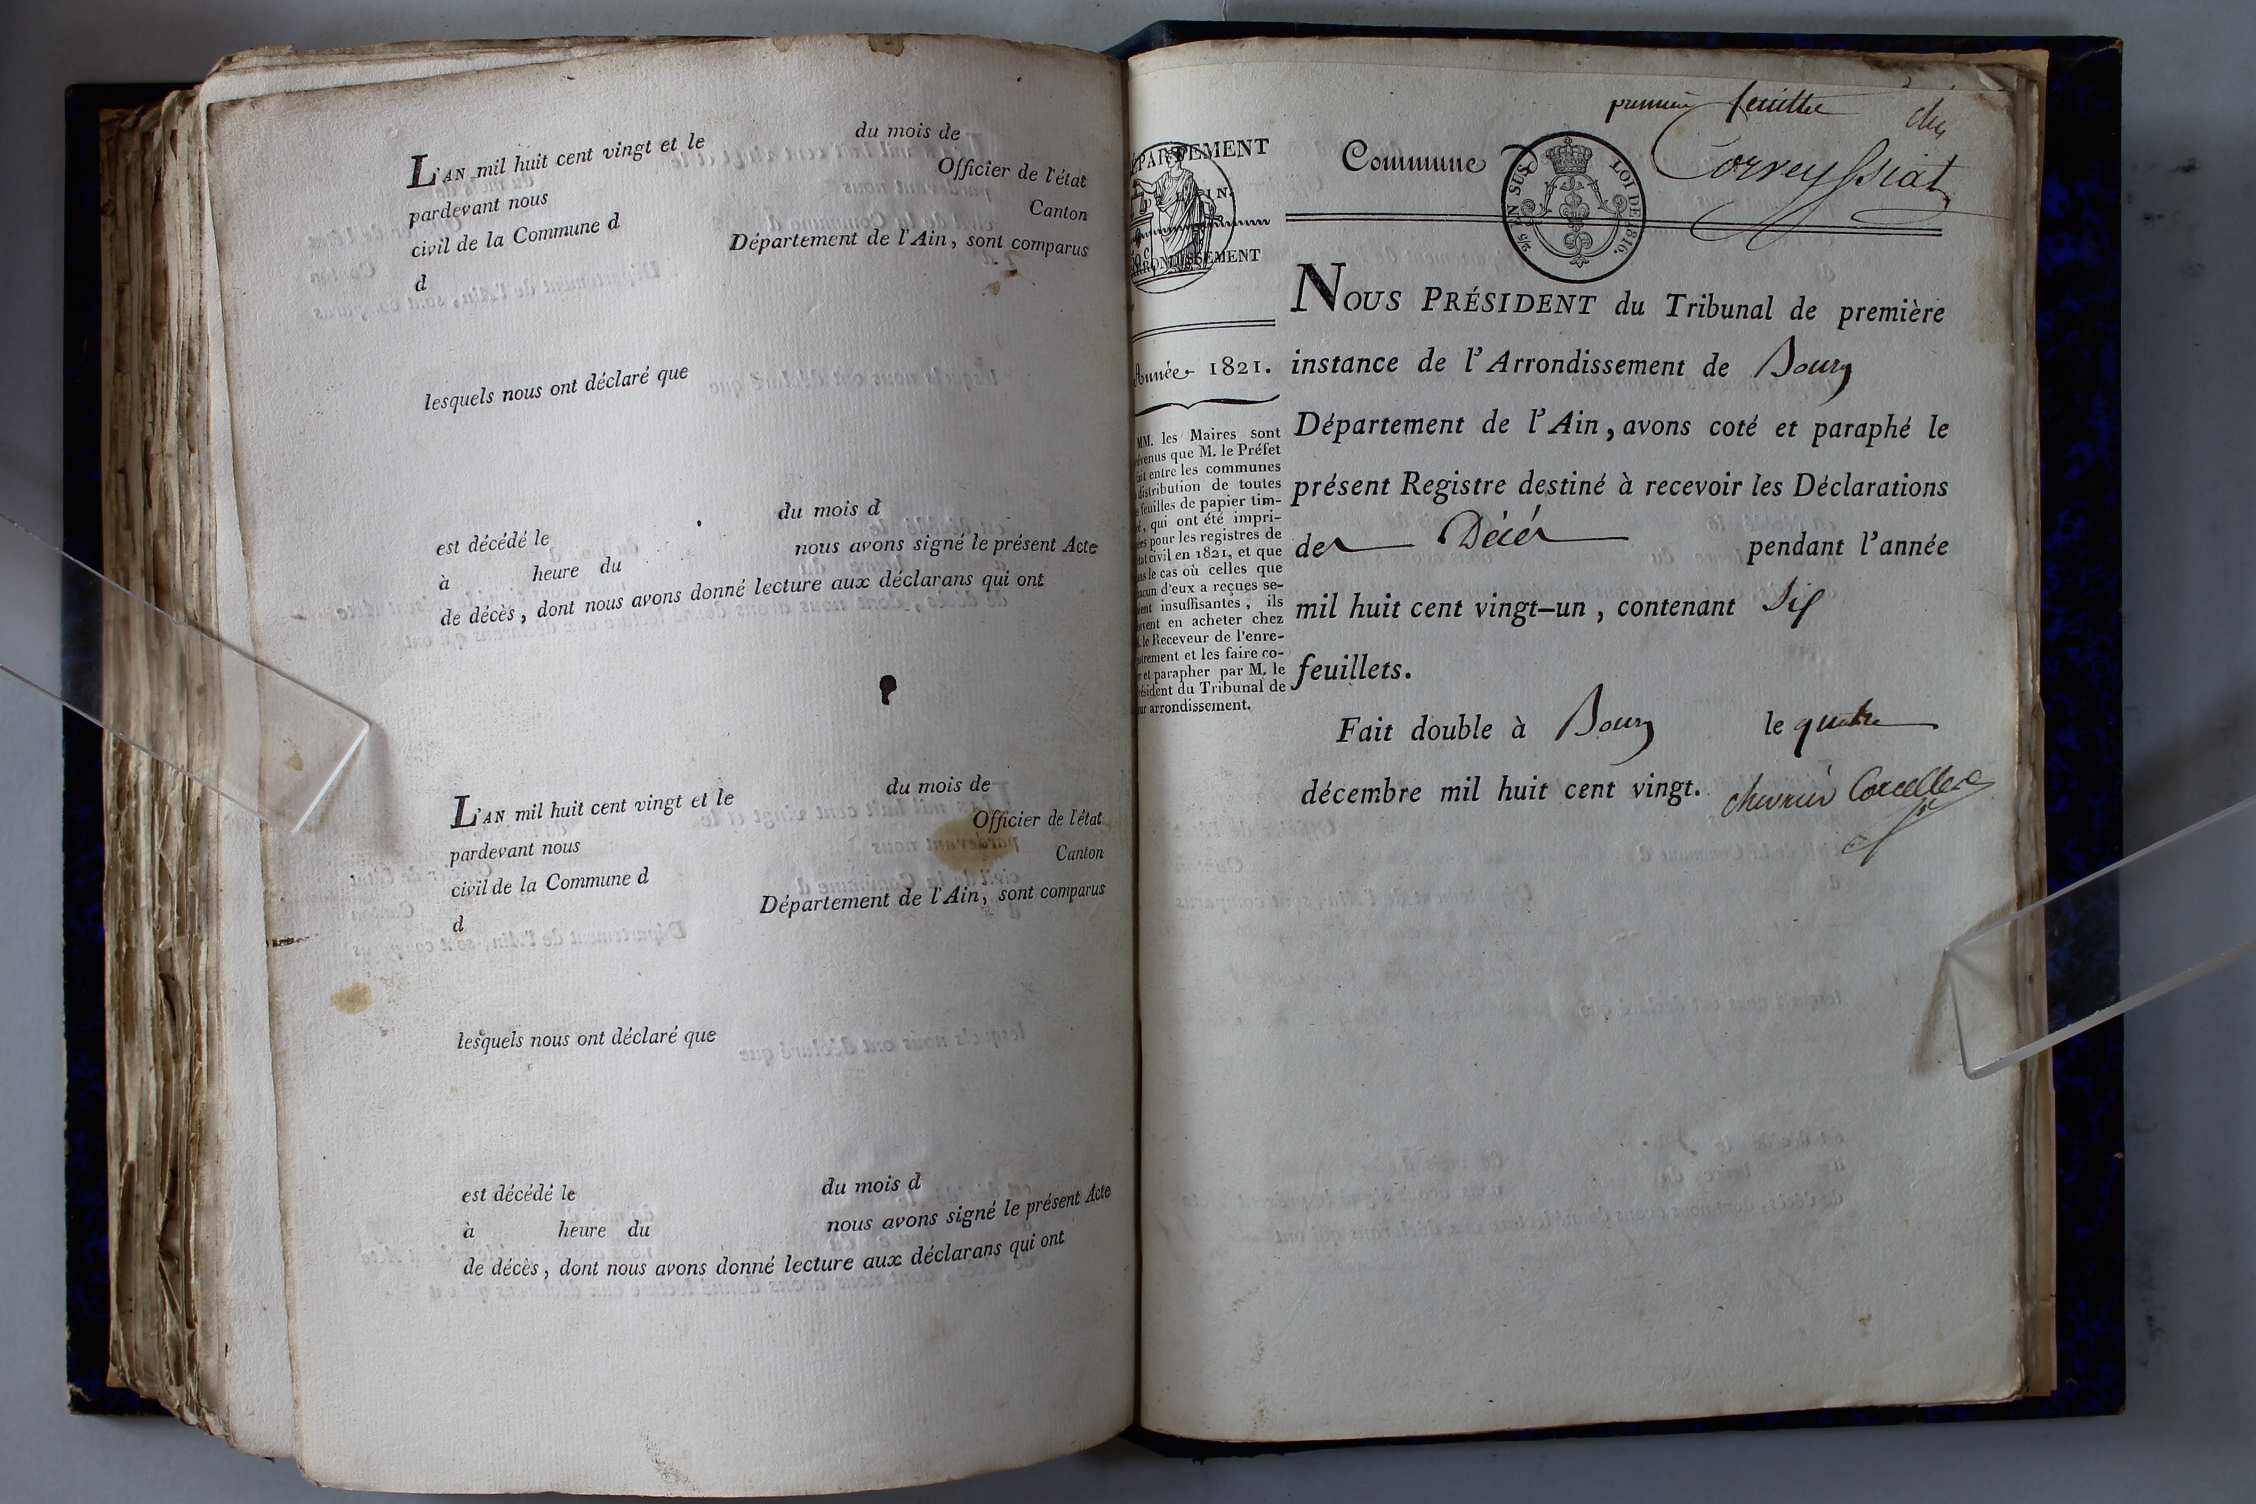 L'AN mil huit cent vingt et le du mois de
pardevant nous Officier de l'état
civil de la Commune d Canton
d Département de l'Ain, sont comparus
lesquels nous ont déclaré que
est décédé le du mois d
à heure du nous avons signé le présent Acte
de décès, dont nous avons donné lecture aux déclarans qui ont
L'AN mil huit cent vingt et le du mois de
pardevant nous Officier de l'état
civil de la Commune d Canton
d Département de l'Ain, sont comparus
lesquels nous ont déclaré que
est décédé le du mois d
à heure du nous avons signé le présent Acte
de décès, dont nous avons donné lecture aux déclarans qui ont
premier feuillet
DÉPARTEMENT
DE L'AIN.
ARRONDISSEMENT
Année 1821.
MM. les Maires sont
prévenus que M. le Préfet
fait entre les communes
distribution de toutes
feuilles de papier tim-
bré, qui ont été impri-
mées pour les registres de
l'état civil en 1821, et que
dans le cas où celles que
chacun d'eux a reçues se-
roient insuffisantes, ils
doivent en acheter chez
M. le Receveur de l'enre-
gistrement et les faire co-
ter et parapher par M. le
Président du Tribunal de
leur arrondissement.
Commune de Corveyssiat
EN SUS LOI DE 1816.
NOUS PRÉSIDENT du Tribunal de première
instance de l'Arrondissement de Bourg
Département de l'Ain, avons coté et paraphé le
présent Registre destiné à recevoir les Déclarations
de Décès pendant l'année
mil huit cent vingt-un, contenant Six
feuillets.
Fait double à Bourg le quatre
décembre mil huit cent vingt.
chevrier Corcelles